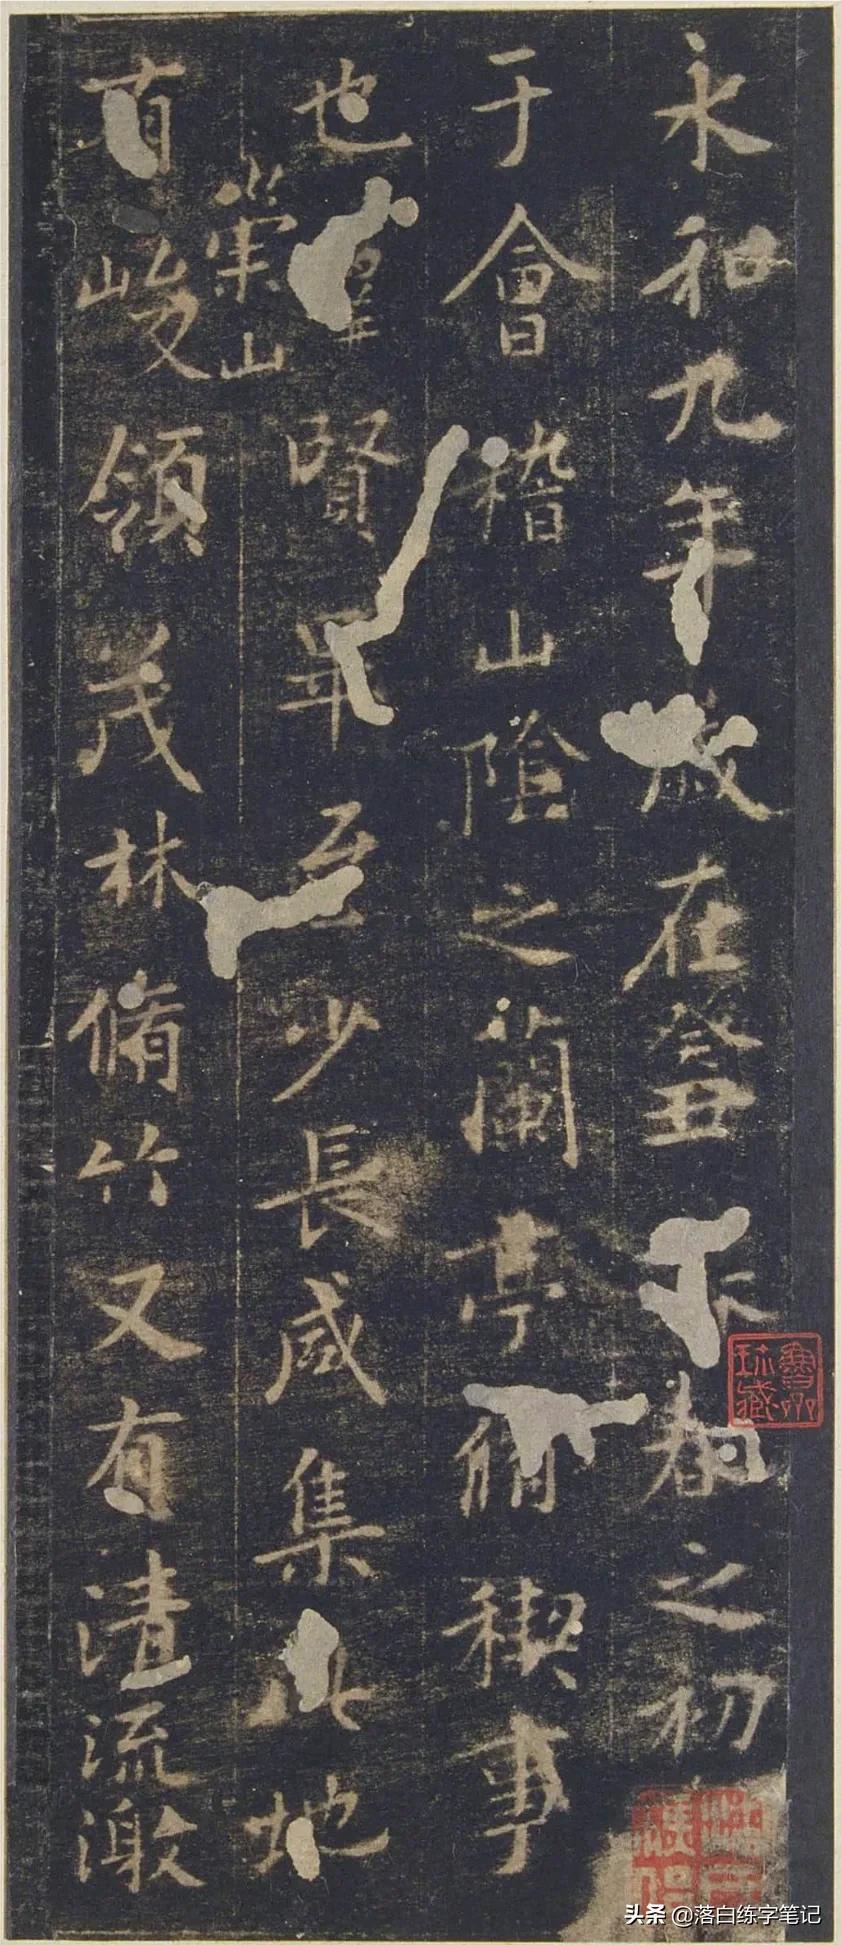 永和九年歲在癸丑暮春之初
于會稽山隂之蘭亭脩稧事
也羣賢畢至少長咸集此地
崇山
有峻領茂林脩竹又有清流激
頭条 @落白练字笔记